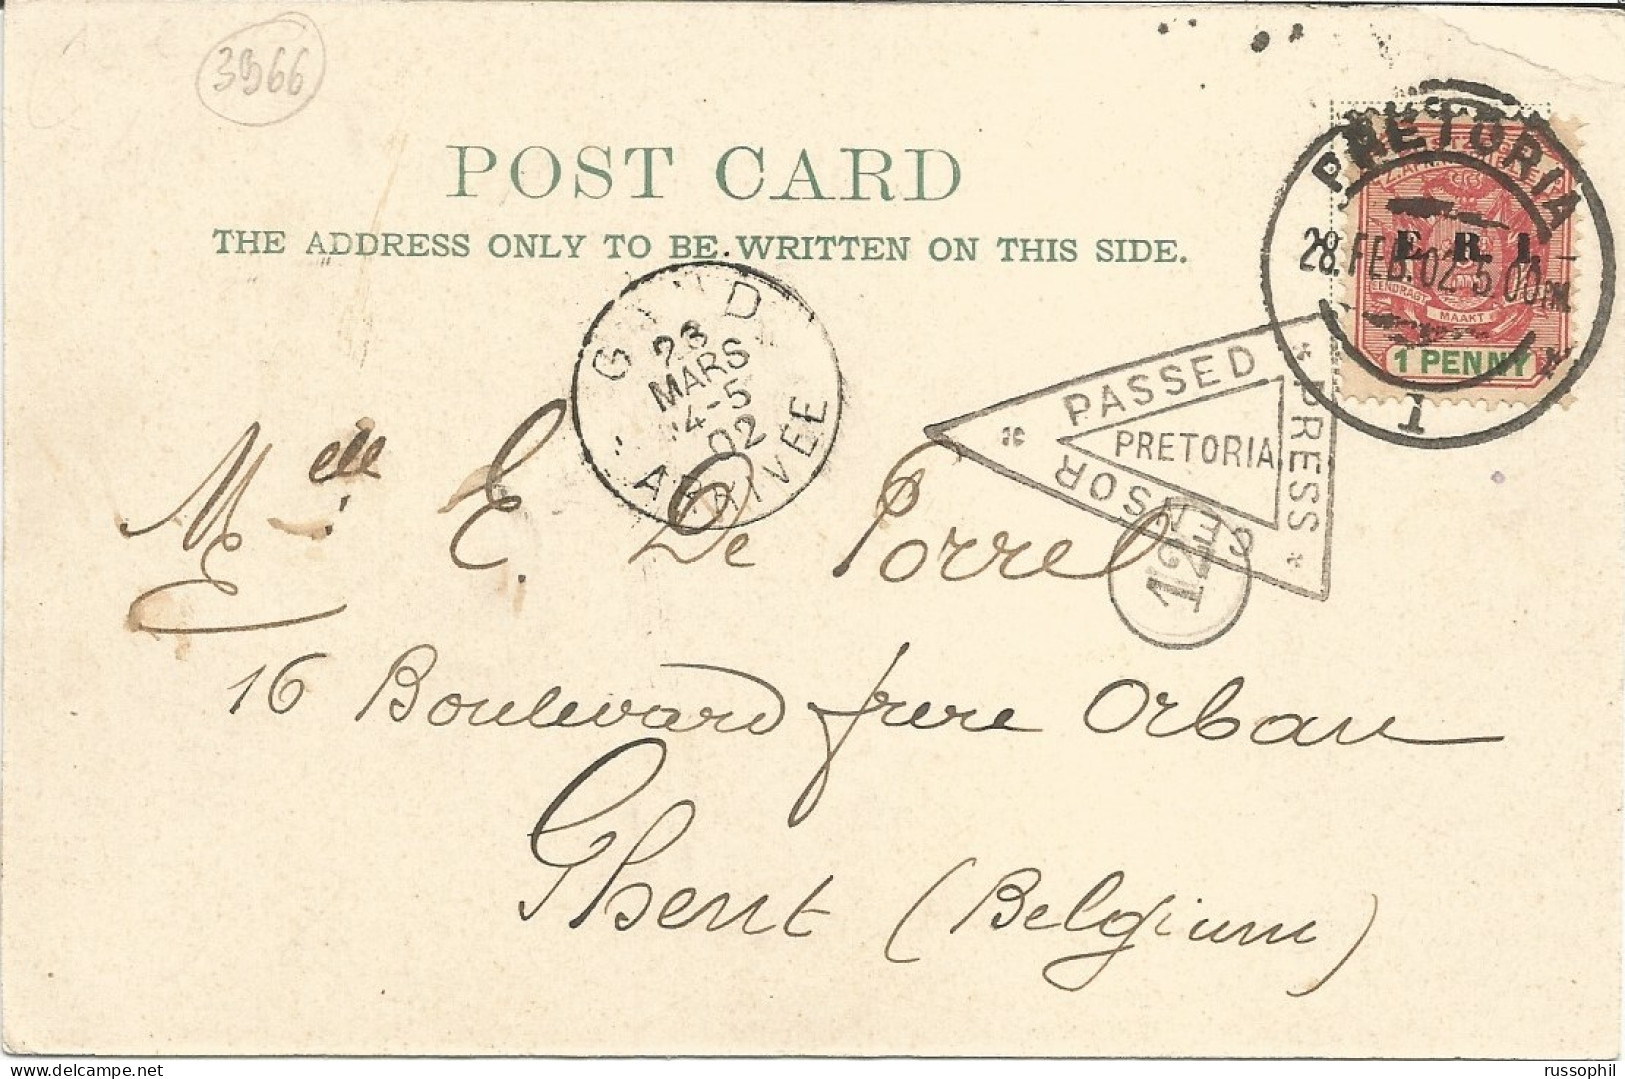 3966
POST CARD
THE ADDRESS ONLY TO BE WRITTEN ON THIS SIDE.
PRETORIA
28.FEB.02 5.00PM.
1
Z. AFR.
E.R.I.
EENDRAGT MAAKT
1 PENNY
GAND
23
MARS
4-5
02
ARRIVÉE
PASSED
PRESS
CENSOR
PRETORIA
12
Melle E. De Porre
16 Boulevard frere Orban
Ghent (Belgium)
russophil - www.delcampe.net